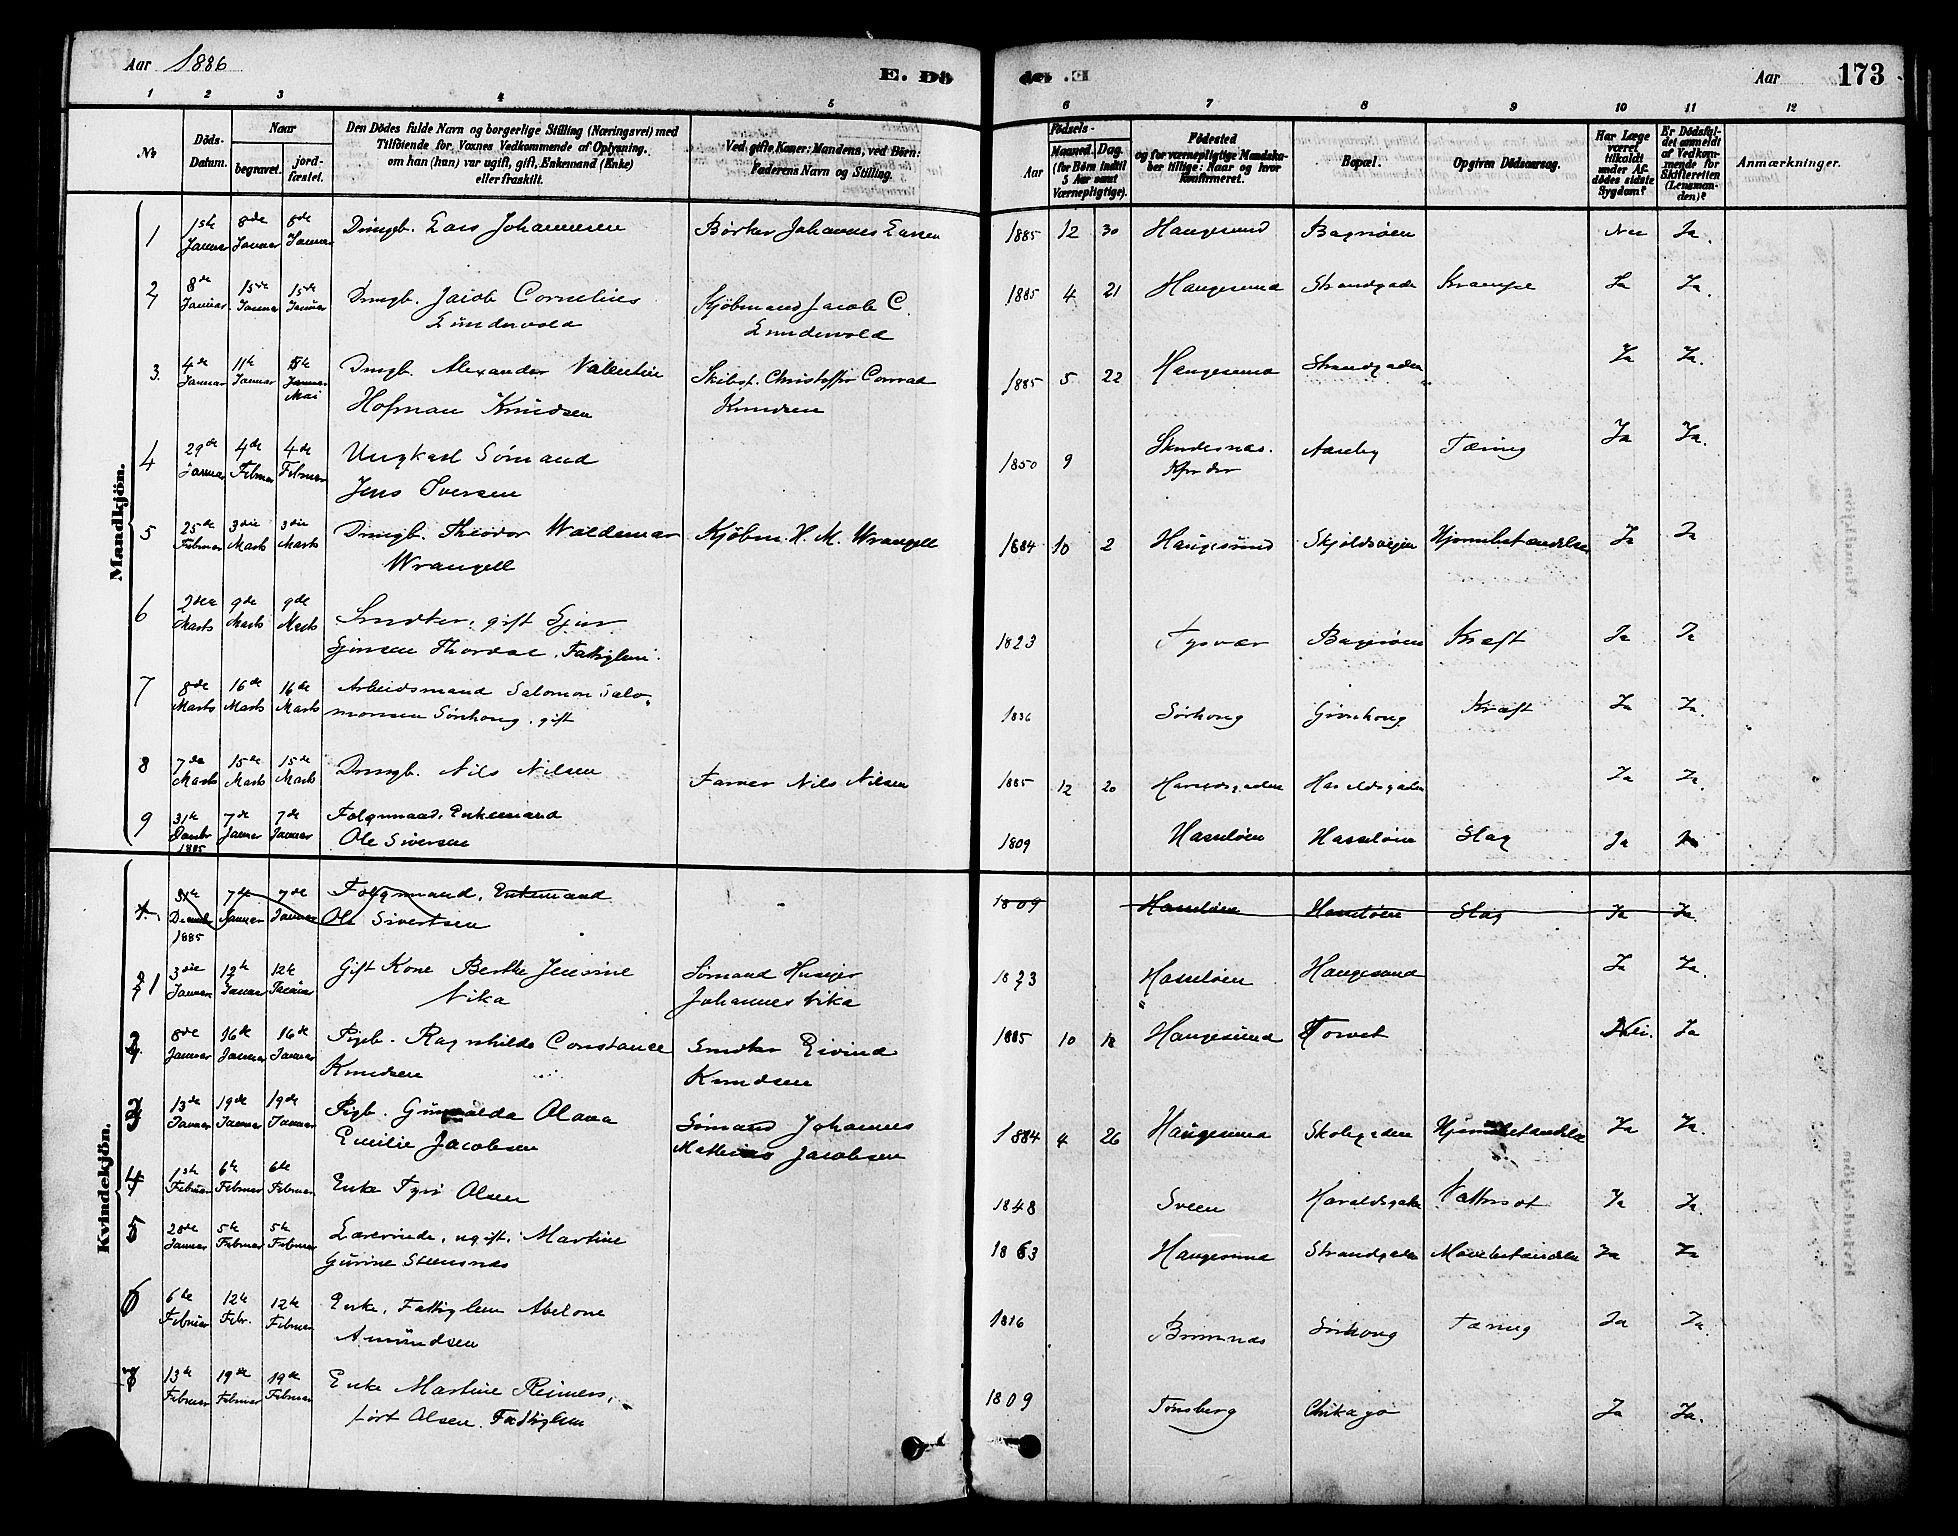 Aar 1886
E. Dö
E. Dö
Aar
173
1 2 3 4 5 6 7 8 9 10 11 12
No
Döds-Datum.
Naar
begravet.
jord-fæstet.
Den Dödes fulde Navn og borgerlige Stilling (Næringsvei) med
Tilföiende for Voxnes Vedkommende af Oplysning,
om han (hun) var ugift, gift, Enkemand (Enke)
eller fraskilt.
Ved gifte Koner: Mandens, ved Börn:
Faderens Navn og Stilling.
Födsels-
Aar
Maaned. Dag.
(for Börn indtil
5 Aar samt
Værnepligtige).
Födested
og for værnepligtige Mandska-
ber tillige: Naar og hvor
konfirmeret.
Bopæl.
Opgiven Dödsaarsag.
Har Læge
været
tilkaldt
under Af-
dödes sidste
Sygdom?
Er Dödsfal-
det anmeldt
af Vedkom-
mende for
Skifteretten
(Lensman-
den)?
Anmærkninger.
Mandkjön.
1 1ste Januar 8de Januar 8de Januar Drengb. Lars Johannesen Børker Johannes Larsen 1885 12 30 Haugesund Bagrøen Nei Ja.
2 8de Januar 15de Januar 15de Januar Drngb. Jacob Cornelius Kjøbmand Jacob C. 1885 4 21 Haugesund Strandgade Krampe Ja Ja.
Lundevold Lundevold
3. 4de Januar 11te Januar Januar Mai Drngb. Alexander Valentin Skibsf. Christoffer Conrad 1885 5 22 Haugesund Strandgaden Ja Ja.
Hofman Knudsen Knudsen
4 29de Januar 4de Februar 4de Februar Ungkarl Sømand 1850 9 Skudesnæs. Aaseby Tæring Ja Ja.
Jens Iversen
5 25de Februar 3die Marts 3die Marts Drngb. Theodor Waldemar Kjøbm. H. M. Wrangell 1884 10 2 Haugesund Skjoldsveien Hjernebetændelse Ja Ja
Wrangell
6 2den Marts 9de Marts 9de Marts Snedker, gift Gjer 1823 Tysvær Bagrøen Kræft Ja Ja
Thordal. Fattiglem.
7 8de Marts 16de Marts 16de Marts Arbeidsmand Salomon Salo- 1836 Sørhoug Kræft Ja Ja.
monsen Sørhoug, gift
8 7de Marts 15de Marts 15de Marts Drngb. Nils Nilsen Farver Nils Nilsen 1885 12 20 Haraldsgaden Haraldsgaden Ja Ja
9 31te Decbr 1885 7de Januar 7de Januar Folgmand, Enkemand 1809 Hasseløen Hasseløen Slag Ja
Ole Siversen
Kvindekjön.
1. 31te Decemb 1885 7de Januar 7de Januar Folgmand, Enkemand 1809 Hasseløen Hasseløen Slag Ja Ja.
Ole Sivertsen
1 3die Januar 12te Januar 12te Januar Gift Kone Berthe Jensine Sømand Huseier 1823 Hasseløen Haugesund Ja Ja.
Vika Johannes Vika
2 8de Januar 16de Januar 16de Januar Pigeb. Ragnhilda Constance Snedker Eivind 1885 10 18 Haugesund Torvet Nei. Ja
Knudsen Knudsen
3 13de Januar 19de Januar 19de Januar Pigb. Gunvalda Olava Sømand Johannes 1884 4 26 Haugesund Skolegaden Hjernebetændelse Ja Ja.
Emilie Jacobsen Mathias Jacobsen
4 1ste Februar 6te Februar 6te Februar Enke Tyri Olsen 1848 Sveen Haraldsgaden Vattersot Ja Ja.
5 28de Januar 5te Februar 5te Februar Lærerinde, ugift, Martine 1863 Haugesund Strandgaden Mavebetændelse Ja Ja
Gurine Steensnæs
6 6te Februar 12te Febr. 12te Februar Enke, Fattiglem Abelone 1816 Bremnæs Sørhoug Tæring Ja Ja.
Amundsen
7 13de Februar 19de Februar 19de Februar Enke Martine Reimers, 1809 Tønsberg Chikago Ja Ja.
født Olsen. Fattiglem